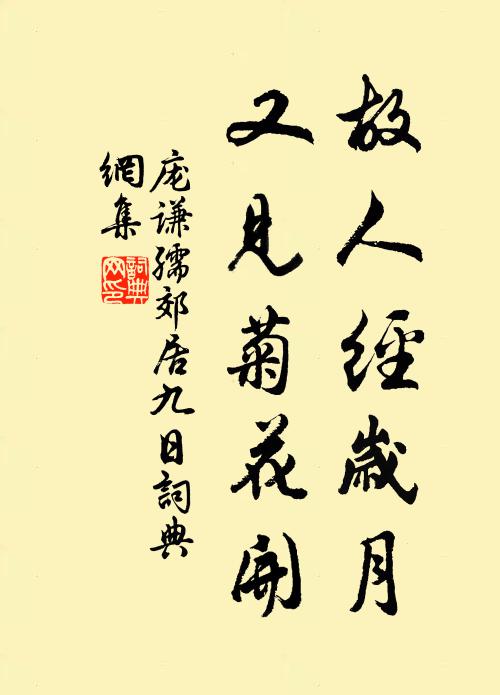 故人經歲月
又見菊花開
庞谦孺郊居九日詞典
網集
詞典
网印